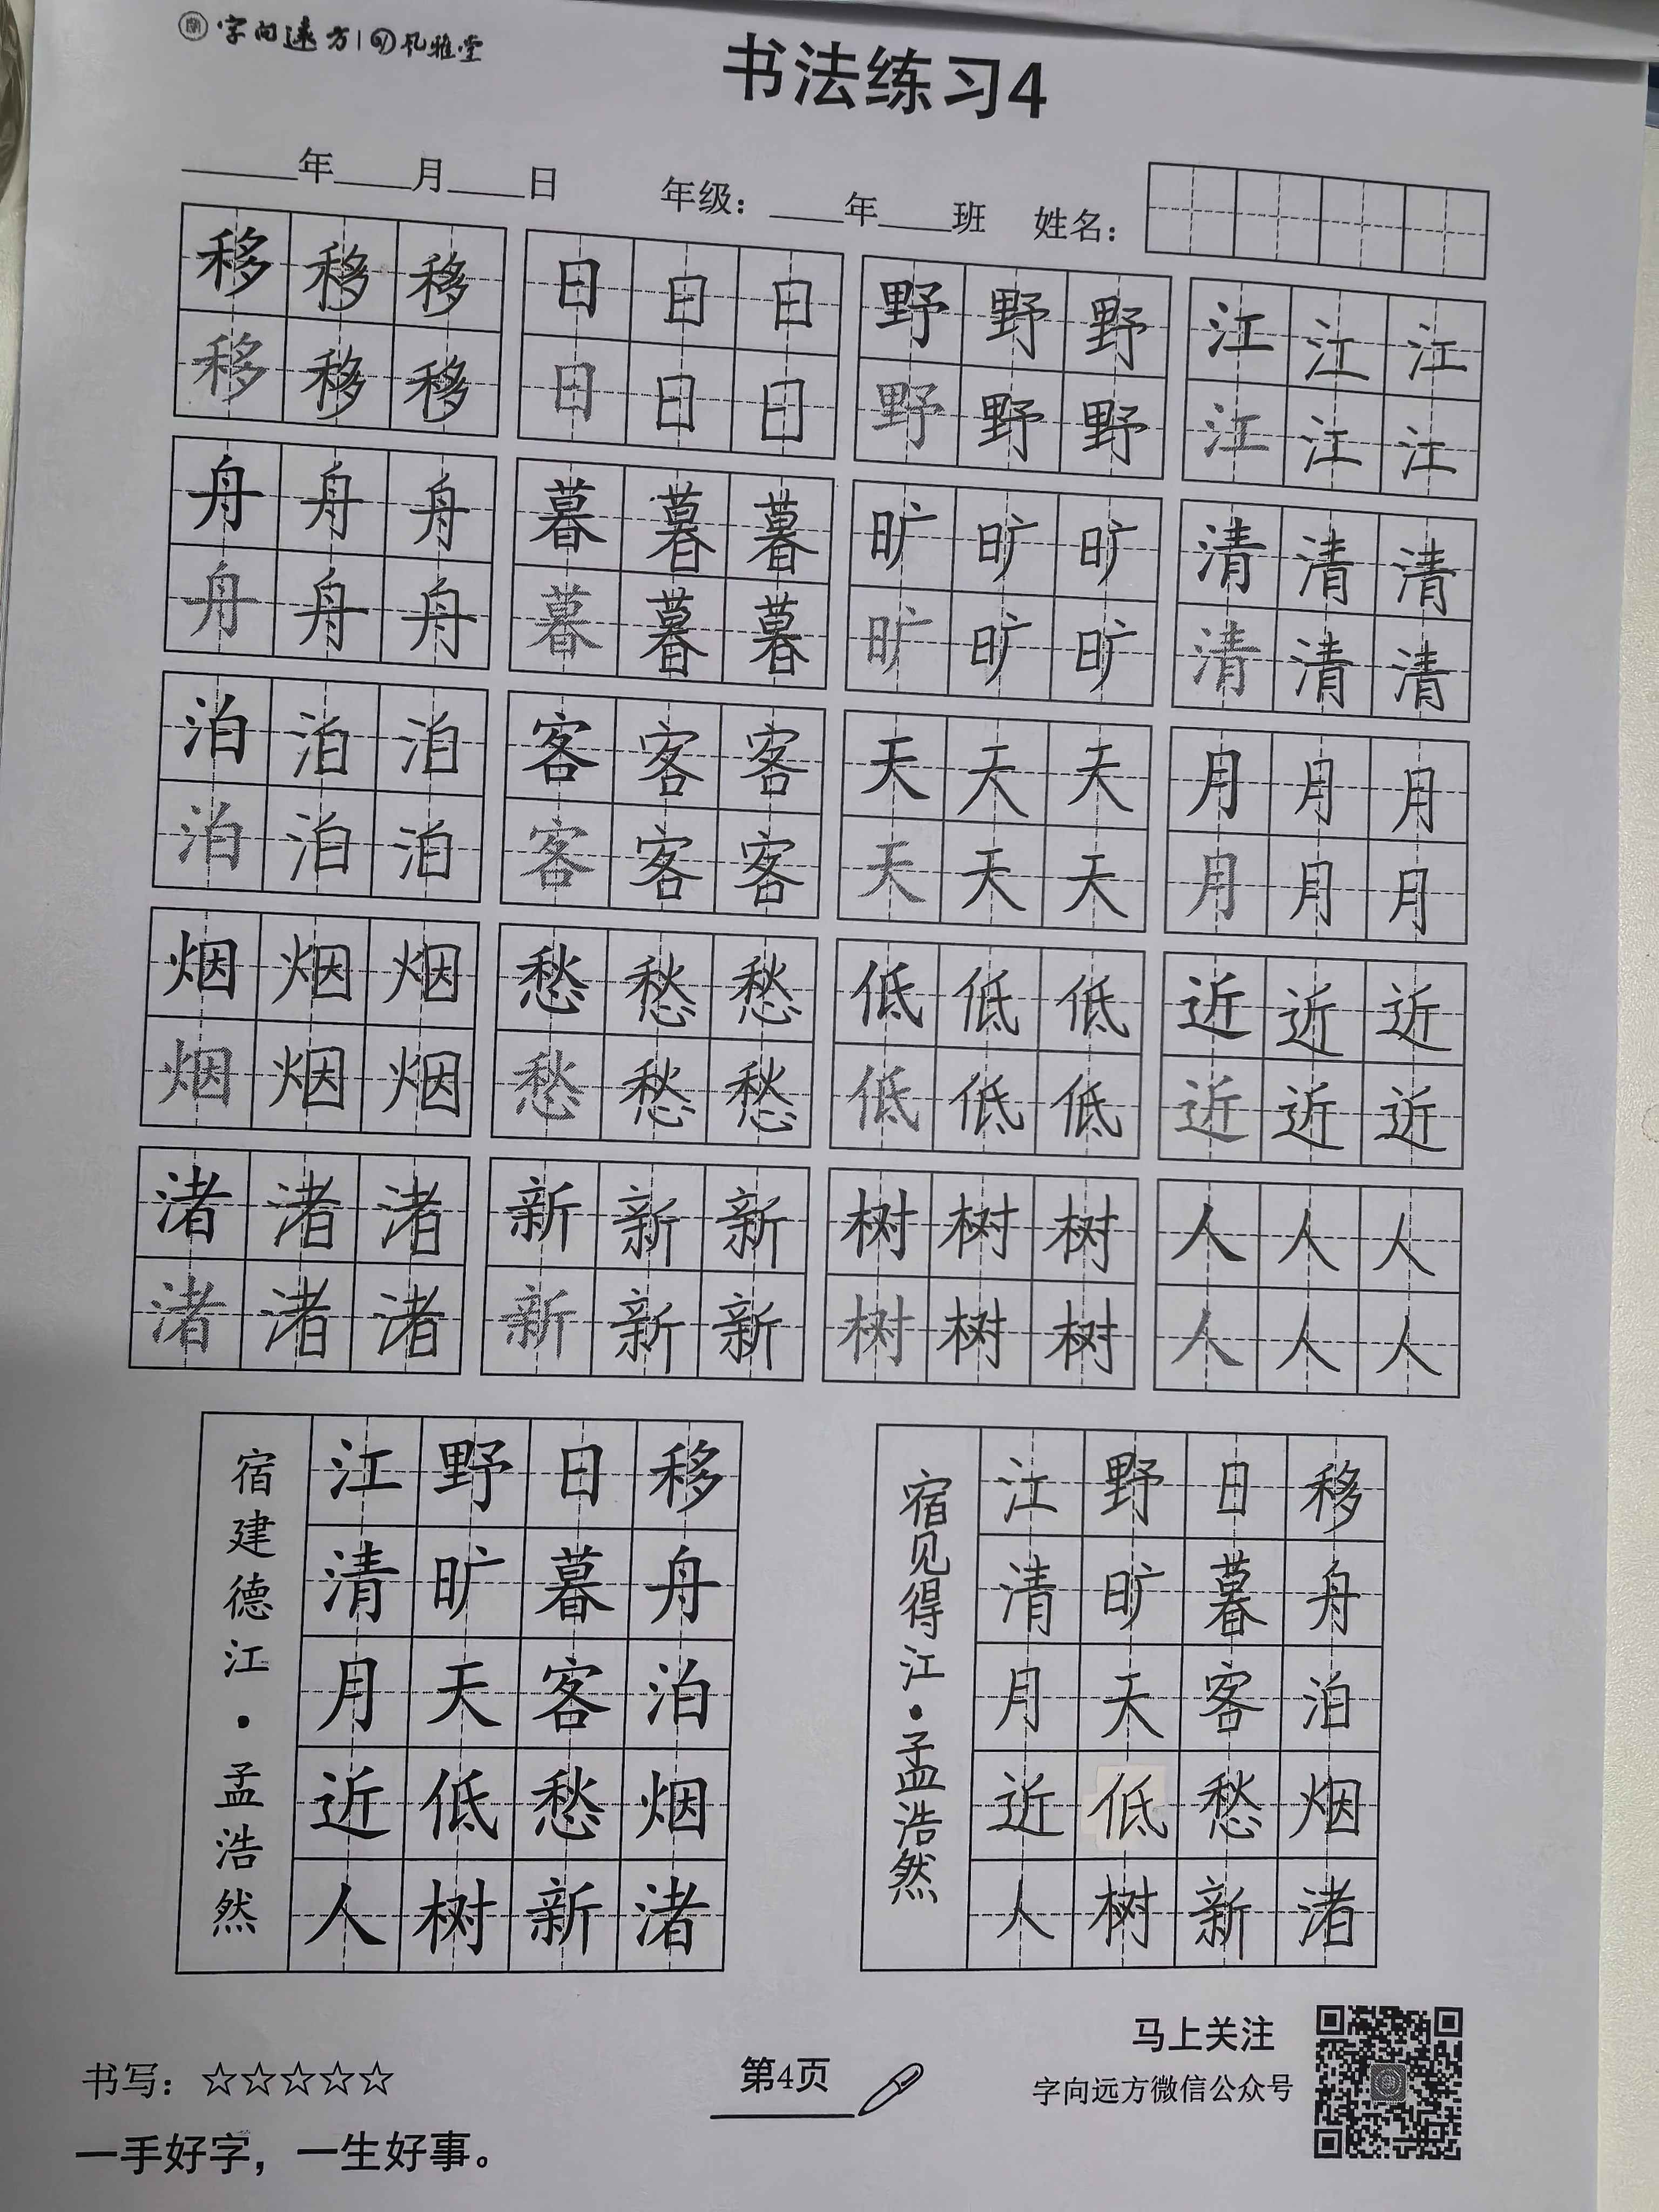 字向远方 | 风雅堂
书法练习4
年 月 日 年级： 年 班 姓名：
移移移 日日日 野野野 江江江
移移移 日日日 野野野 江江江
舟舟舟 暮暮暮 旷旷旷 清清清
舟舟舟 暮暮暮 旷旷旷 清清清
泊泊泊 客客客 天天天 月月月
泊泊泊 客客客 天天天 月月月
烟烟烟 愁愁愁 低低低 近近近
烟烟烟 愁愁愁 低低低 近近近
渚渚渚 新新新 树树树 人人人
渚渚渚 新新新 树树树 人人人
移舟泊烟渚
日暮客愁新
野旷天低树
江清月近人
宿建德江·孟浩然
移舟泊烟渚
日暮客愁新
野旷天低树
江清月近人
宿见得江·孟浩然
书写：☆☆☆☆☆
一手好字，一生好事。
第4页
马上关注
字向远方微信公众号